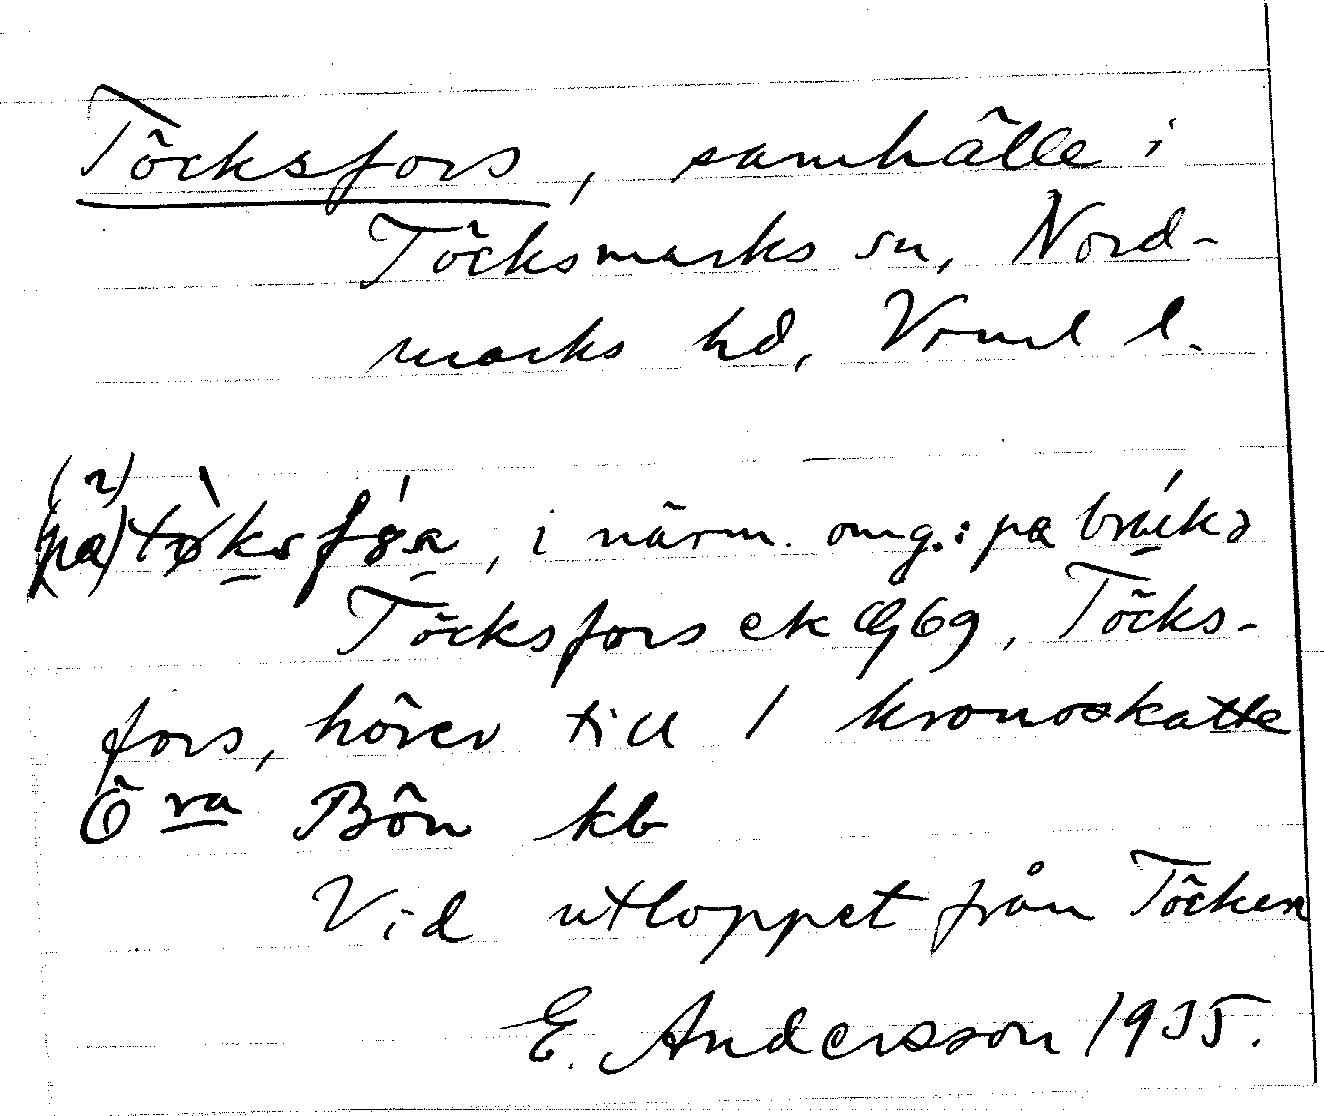 Töcksfors, samhälle i
Töcksmarks sn, Nord-
marks hd, Vrml l.
(2)
(pa) tø̀ksfɷ́s̠a, i närm. omg.: pa brúkə
Töcksfors ek Cg 69, Töcks-
fors, hörer till 1 kronoskatte
Ö ra Bön kb
Vid utloppet från Töcken
E. Andersson 1935.